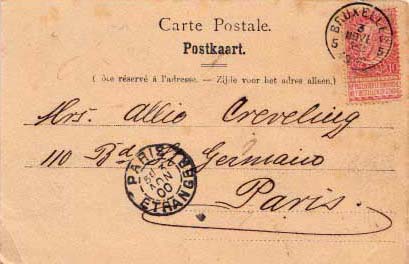 Carte Postale.
Postkaart.
(Côté réservé à l'adresse. — Zijde voor het adres alleen.)
BRUXELLES
5 3 5
NOV
Mrs. Allie Creveling
110 Bd. St. Germain
PARIS
NOV
00
ETRANGER
Paris.